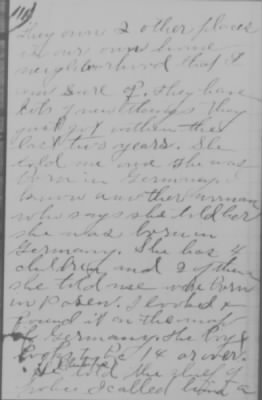 They own 2 other places
in our own home
neighborhood that I
am sure of. They have
lots of new things they
just got within the
last two years. She
told me one she was
born in Germany.
know another woman
who says she told her
she was born in
Germany. She has 4
children and 2 of them
she told me were born
in Posen. I looked &
found it on the map
of Germany. The boy
14 or over.
told the chief of
police I called him a